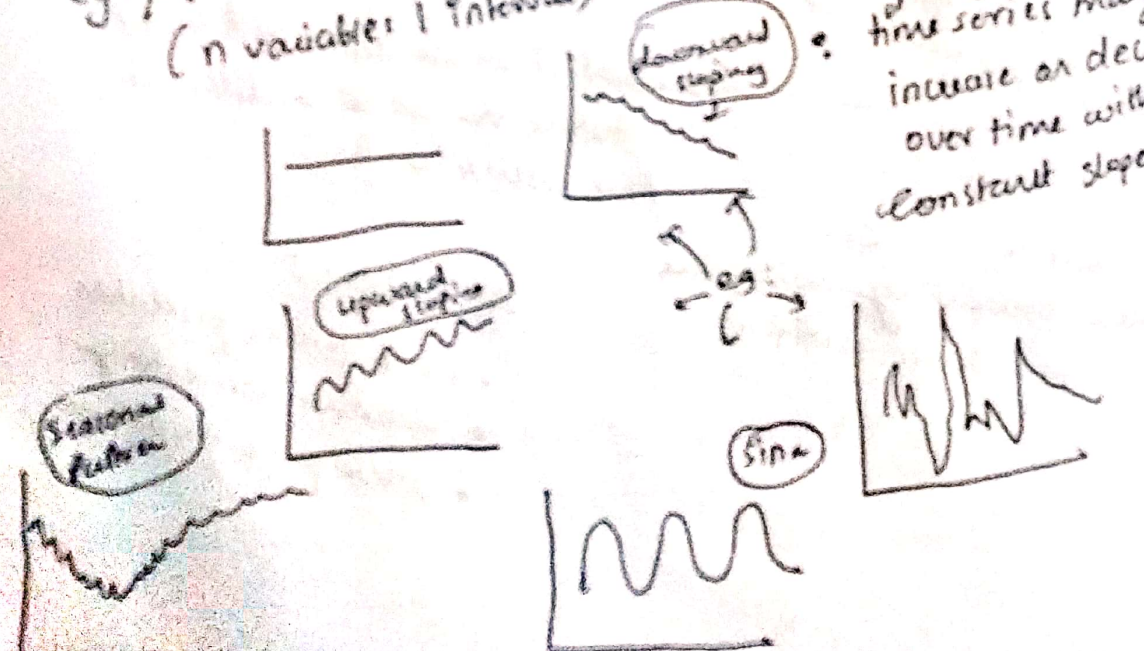 (n variables | 
downward
sloping
: time series
increase or
over time
constant slope
eg:
upward
sloping
Seasonal
Pattern
Sine